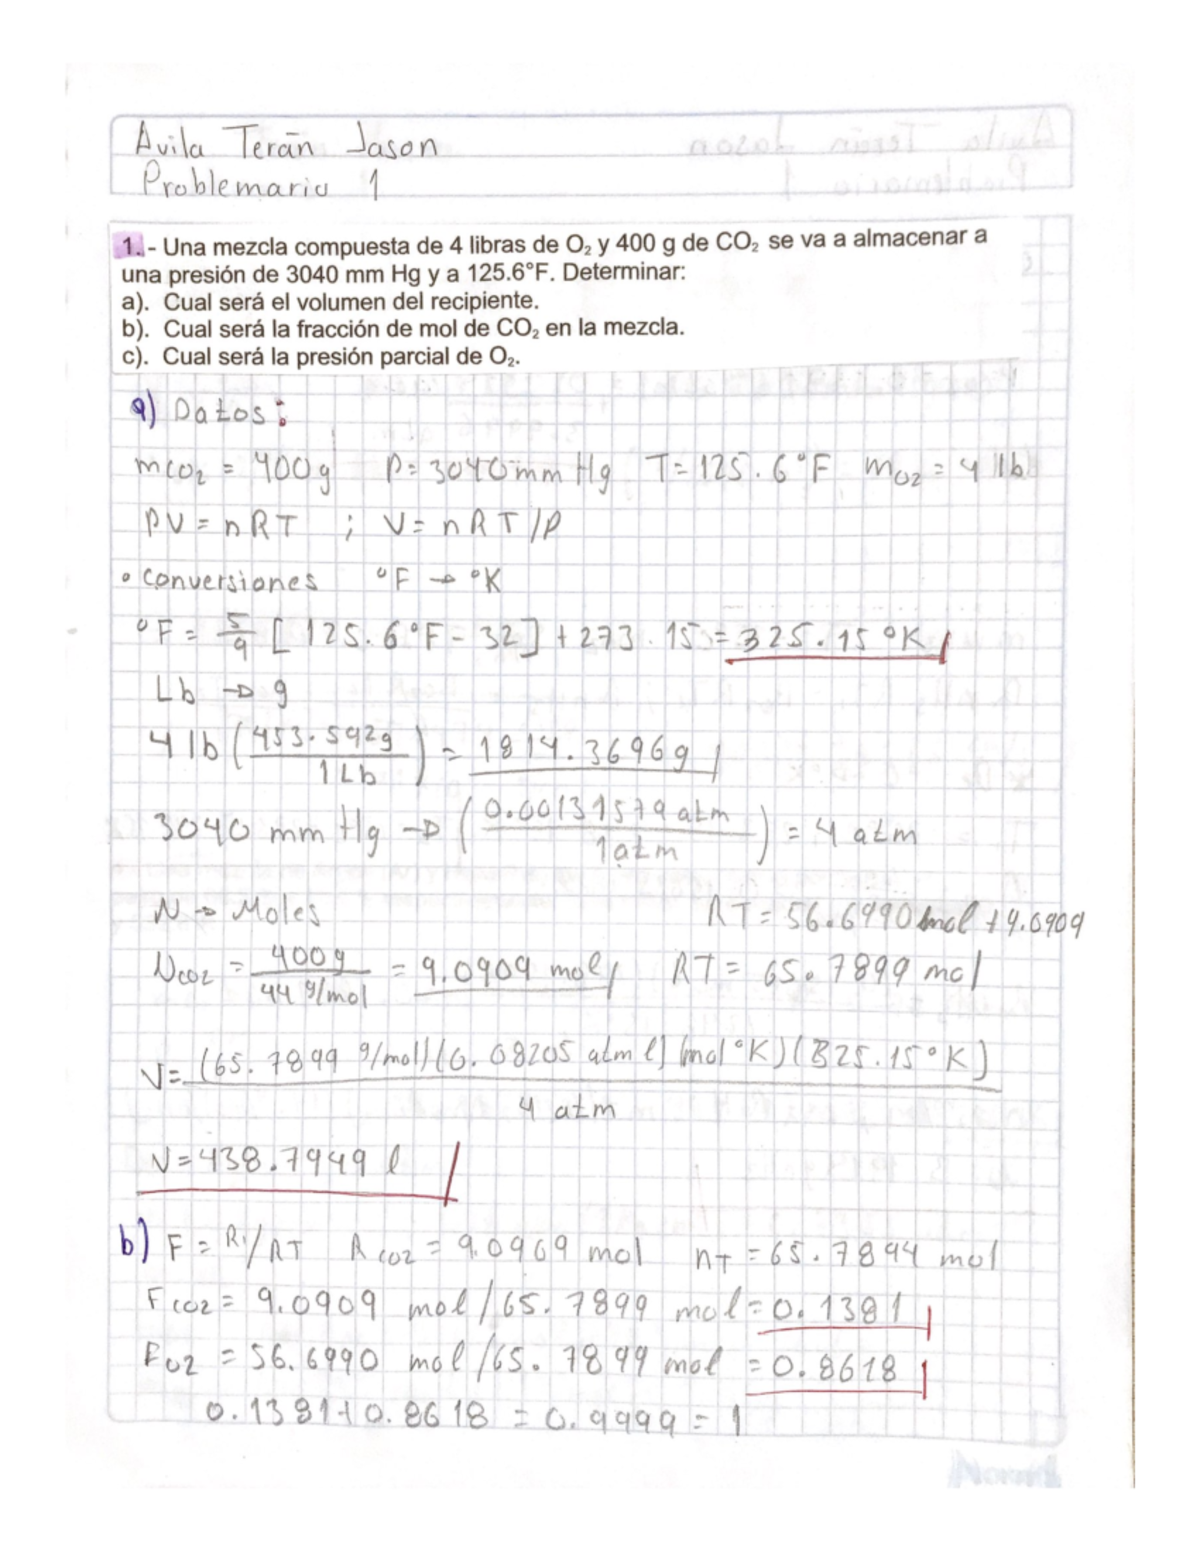 Avila Terān Jason
Problemario 1
1. - Una mezcla compuesta de 4 libras de O₂ y 400 g de CO₂ se va a almacenar a
una presión de 3040 mm Hg y a 125.6°F. Determinar:
a). Cual será el volumen del recipiente.
b). Cual será la fracción de mol de CO₂ en la mezcla.
c). Cual será la presión parcial de O₂.
a) Datos:
mco₂ = 400g P= 3040mm Hg T= 125.6°F mo₂ = 4 lb
PV = nRT ; V= nRT/P
• Conversiones °F → °K
°F = 5/9 [125.6°F - 32] + 273.15 = 325.15°K
Lb → g
4 lb (453.592g / 1 Lb) = 1814.3696g
3040 mm Hg → (0.00131579 atm / 1atm) = 4 atm
N → Moles RT = 56.6990 mol + 9.0909
Nco₂ = 400g / 44 g/mol = 9.0909 mol RT = 65.7899 mol
V= (65.7899 g/mol)(0.08205 atm l) (mol°K)(325.15°K) / 4 atm
V=438.7949 l
b) F = Ri/RT Rco₂ = 9.0909 mol nT = 65.7899 mol
Fco₂= 9.0909 mol/65.7899 mol= 0.1381
Fo₂ = 56.6990 mol/65.7899 mol = 0.8618
0.1381+0.8618 = 0.9999 = 1